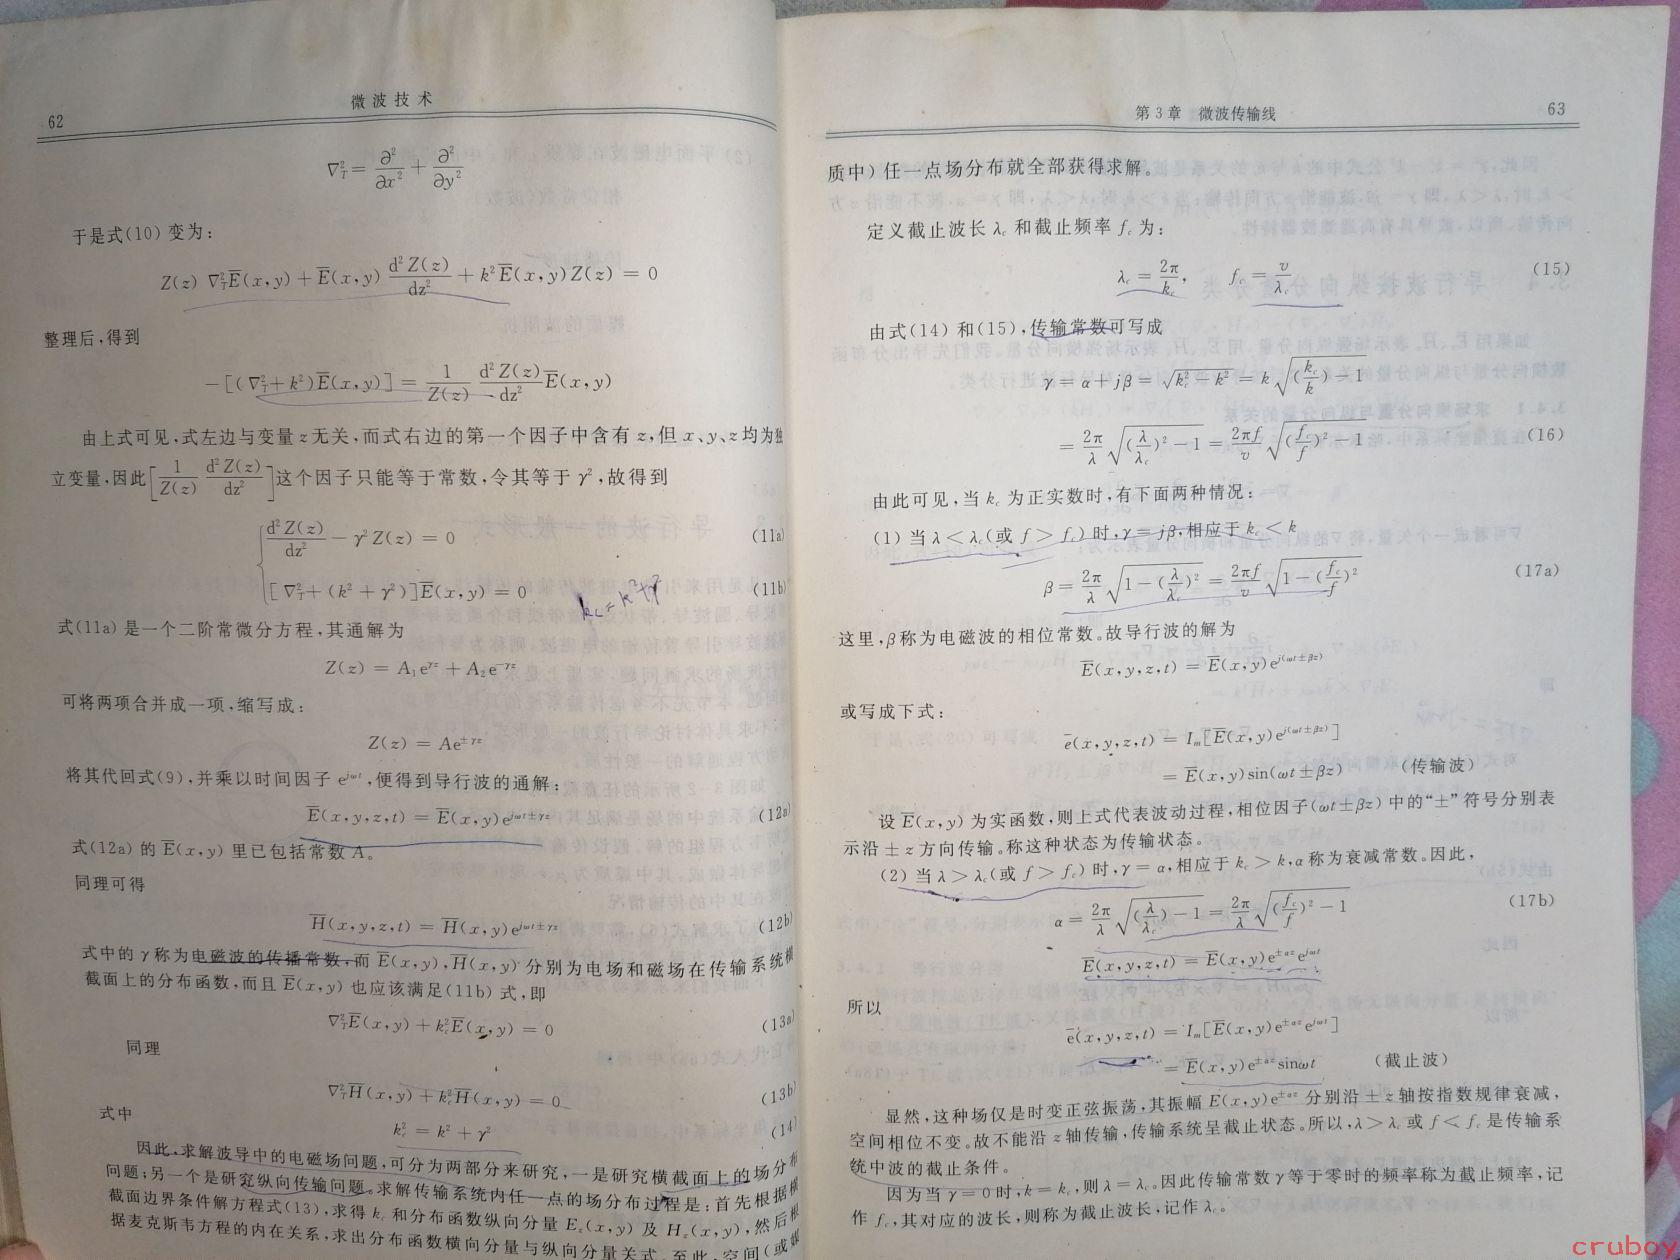 62
微波技术
∇²_T = ∂²/∂x² + ∂²/∂y²
于是式(10)变为:
Z(z) ∇²_T E̅(x,y) + E̅(x,y) d²Z(z)/dz² + k² E̅(x,y)Z(z) = 0
整理后,得到
−[(∇²_T + k²)E̅(x,y)] = 1/Z(z) d²Z(z)/dz² E̅(x,y)
由上式可见,式左边与变量 z 无关,而式右边的第一个因子中含有 z,但 x、y、z 均为独
立变量,因此[1/Z(z) d²Z(z)/dz²]这个因子只能等于常数,令其等于 γ²,故得到
d²Z(z)/dz² − γ²Z(z) = 0 (11a)
[∇²_T + (k² + γ²)]E̅(x,y) = 0 (11b)
kc = k²+γ²
式(11a)是一个二阶常微分方程,其通解为
Z(z) = A₁e^{γz} + A₂e^{−γz}
可将两项合并成一项,缩写成:
Z(z) = Ae^{±γz}
将其代回式(9),并乘以时间因子 e^{jωt},便得到导行波的通解:
E̅(x,y,z,t) = E̅(x,y)e^{jωt±γz} (12a)
式(12a)的 E̅(x,y) 里已包括常数 A。
同理可得
H̅(x,y,z,t) = H̅(x,y)e^{jωt±γz} (12b)
式中的 γ 称为电磁波的传播常数,而 E̅(x,y),H̅(x,y) 分别为电场和磁场在传输系统横
截面上的分布函数,而且 E̅(x,y) 也应该满足(11b)式,即
∇²_T E̅(x,y) + k_c² E̅(x,y) = 0 (13a)
同理
∇²_T H̅(x,y) + k_c² H̅(x,y) = 0 (13b)
式中
k_c² = k² + γ² (14)
因此,求解波导中的电磁场问题,可分为两部分来研究,一是研究横截面上的场分布
问题;另一个是研究纵向传输问题。求解传输系统内任一点的场分布过程是:首先根据横
截面边界条件解方程式(13),求得 k_c 和分布函数纵向分量 E_z(x,y) 及 H_z(x,y),然后根
据麦克斯韦方程的内在关系,求出分布函数横向分量与纵向分量关式。至此,空间(或媒
第3章 微波传输线
63
质中)任一点场分布就全部获得求解。
定义截止波长 λ_c 和截止频率 f_c 为:
λ_c = 2π/k_c, f_c = v/λ_c (15)
由式(14)和(15),传输常数可写成
γ = α + jβ = √(k_c² − k²) = k√((k_c/k)² − 1)
= 2π/λ √((λ/λ_c)² − 1) = 2πf/v √((f_c/f)² − 1) (16)
由此可见,当 k_c 为正实数时,有下面两种情况:
(1) 当 λ < λ_c(或 f > f_c)时,γ = jβ,相应于 k_c < k
β = 2π/λ √(1 − (λ/λ_c)²) = 2πf/v √(1 − (f_c/f)²) (17a)
这里,β称为电磁波的相位常数。故导行波的解为
E̅(x,y,z,t) = E̅(x,y)e^{j(ωt±βz)}
或写成下式:
e̅(x,y,z,t) = I_m[E̅(x,y)e^{j(ωt±βz)}]
= E̅(x,y)sin(ωt±βz) (传输波)
设 E̅(x,y) 为实函数,则上式代表波动过程,相位因子(ωt±βz)中的“±”符号分别表
示沿 ± z 方向传输。称这种状态为传输状态。
(2) 当 λ > λ_c(或 f > f_c)时,γ = α,相应于 k_c > k,α 称为衰减常数。因此,
α = 2π/λ √((λ/λ_c)² − 1) = 2π/λ √((f_c/f)² − 1) (17b)
E̅(x,y,z,t) = E̅(x,y)e^{±αz}e^{jωt}
所以
e̅(x,y,z,t) = I_m[E̅(x,y)e^{±αz}e^{jωt}]
= E̅(x,y)e^{±αz}sinωt (截止波)
显然,这种场仅是时变正弦振荡,其振幅 E̅(x,y)e^{±αz} 分别沿 ± z 轴按指数规律衰减,
空间相位不变。故不能沿 z 轴传输,传输系统呈截止状态。所以,λ > λ_c 或 f < f_c 是传输系
统中波的截止条件。
因为当 γ = 0 时,k = k_c,则 λ = λ_c。因此传输常数 γ 等于零时的频率称为截止频率,记
作 f_c,其对应的波长,则称为截止波长,记作 λ_c。
cruboy